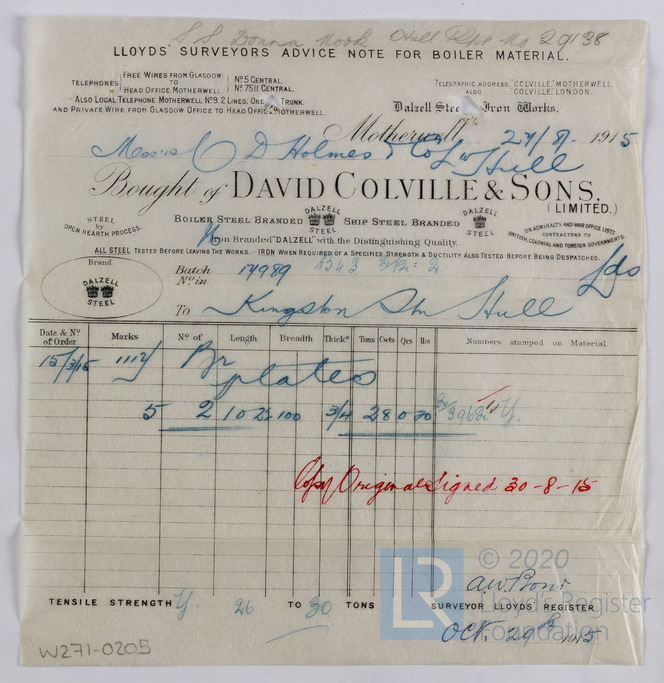 S.S. Donna Nook Hull Rpt No 29138
LLOYDS' SURVEYORS ADVICE NOTE FOR BOILER MATERIAL.
TELEPHONES FREE WIRES FROM GLASGOW. TO HEAD OFFICE, MOTHERWELL. No 5 CENTRAL. No 7511 CENTRAL.
ALSO LOCAL TELEPHONE MOTHERWELL No 9. 2 LINES, ONE TRUNK.
AND PRIVATE WIRE FROM GLASGOW OFFICE TO HEAD OFFICE MOTHERWELL.
TELEGRAPHIC ADDRESS. COLVILLE, MOTHERWELL.
ALSO COLVILLE, LONDON.
Dalzell Steel Iron Works.
Motherwell 27/8/ 1915
Messrs C D Holmes & Co Ld Hull
Bought of DAVID COLVILLE & SONS,
(LIMITED.)
STEEL by OPEN HEARTH PROCESS.
BOILER STEEL BRANDED DALZELL STEEL SHIP STEEL BRANDED DALZELL STEEL
ON ADMIRALTY AND WAR OFFICE LISTS
CONTRACTORS TO
BRITISH, COLONIAL AND FOREIGN GOVERNMENTS.
Iron Branded "DALZELL" with the Distinguishing Quality.
ALL STEEL TESTED BEFORE LEAVING THE WORKS. - IRON WHEN REQUIRED OF A SPECIFIED STRENGTH & DUCTILITY ALSO TESTED BEFORE BEING DESPATCHED.
Brand
DALZELL STEEL
Batch No in 17989 1343 312 = 2
Lds
To Kingston Stn Hull
Date & No of Order Marks No of Length Breadth Thick" Tons Cwts Qrs lbs Numbers stamped on Material
15/3/15 1112/ Br
plates
5 2 10 2½ 100 3/4 28 0 20
Copy Original Signed 30-8-15
LR © 2020
Lloyd's Register
Foundation
TENSILE STRENGTH 26 TO 30 TONS
SURVEYOR LLOYD'S REGISTER
OCT. 29th 1915
W271-0205